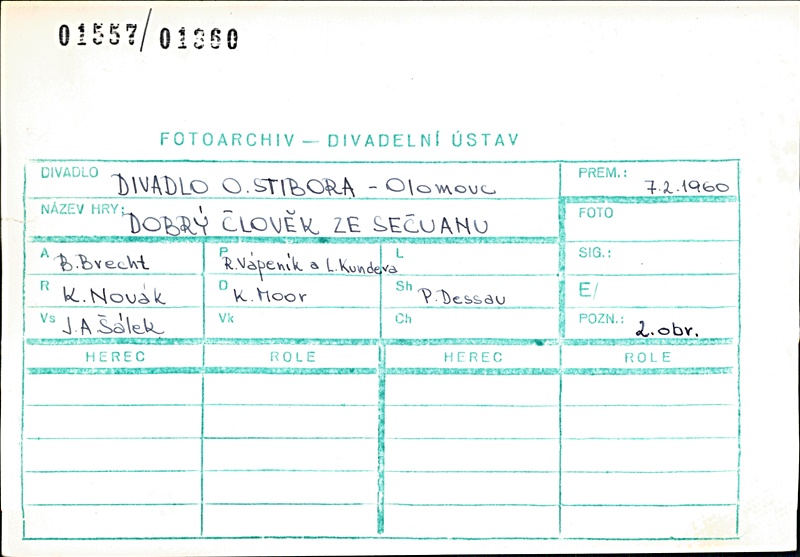 01557/01360
FOTOARCHIV — DIVADELNÍ ÚSTAV
DIVADLO DIVADLO O. STIBORA - Olomouc
PREM.: 7.2.1960
NÁZEV HRY: DOBRÝ ČLOVĚK ZE SEČUANU
FOTO
A B.Brecht P R.Vápeník a L.Kundera L
SIG.:
R K.Novák D K.Moor Sh P.Dessau
E/
Vs J.A Šálek Vk Ch
POZN.: 2.obr.
HEREC ROLE HEREC ROLE